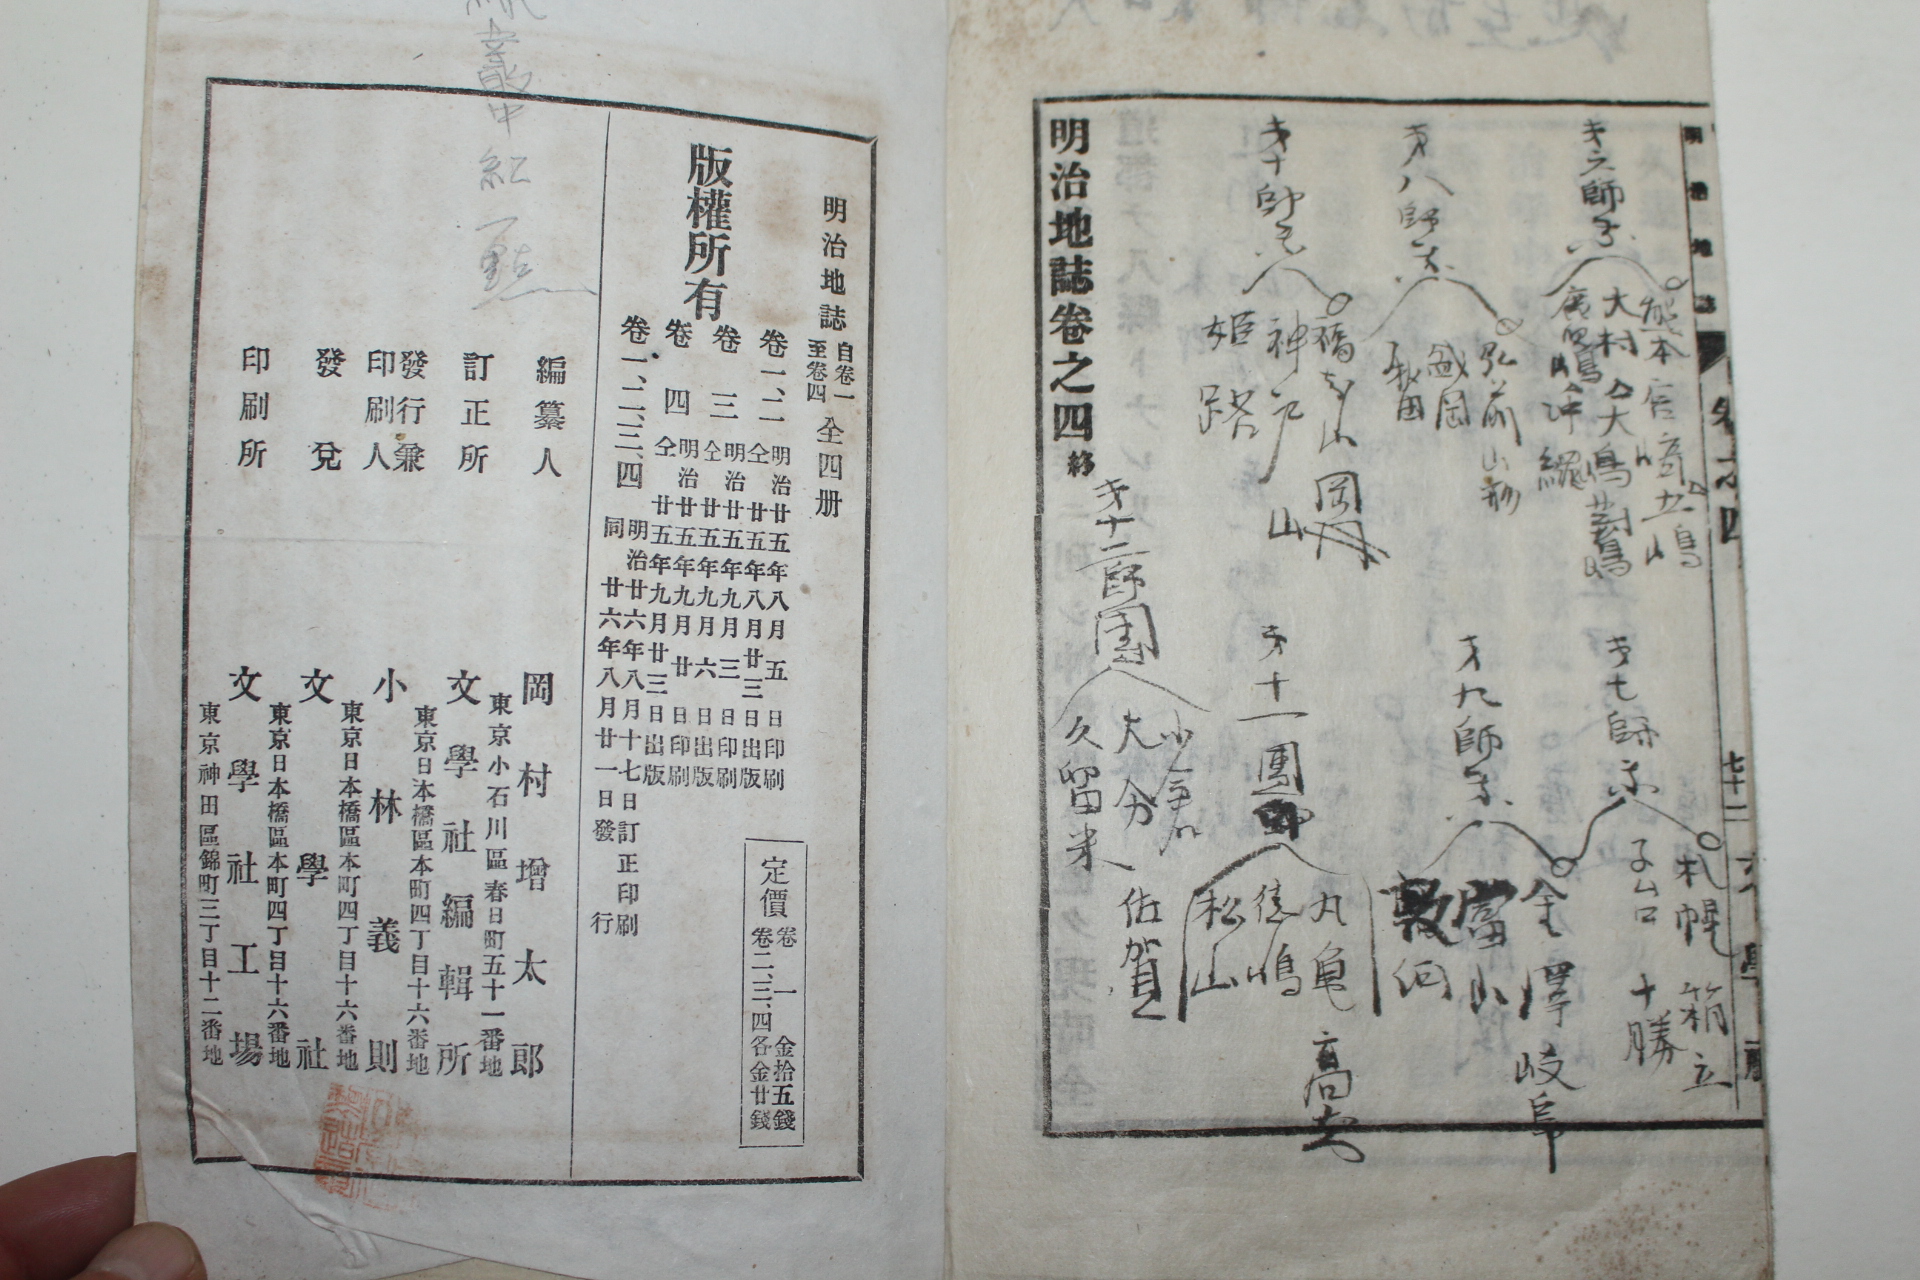 明治地誌
卷之四
七十二
文學
第六師
熊本 宮崎 五嶋
大村 大嶋 對馬
鹿児嶋 沖縄
第八師
弘前 山形
盛岡
秋田
第十師
福知山 岡山
神戸
姫路
第七師
札幌 箱立
子台 十勝
第九師
金澤 岐阜
富山
敦何
第十一團師
丸亀 高知
徳嶋
松山
第十二師團
小倉
大分 佐賀
久留米
明治地誌卷之四終
明治地誌 自卷一至卷四 全四册
版權所有
卷一、二 明治廿五年八月五日印刷
仝廿五年八月廿三日出版
卷三 明治廿五年九月三日印刷
仝廿五年九月六日出版
卷四 明治廿五年九月廿日印刷
仝廿五年九月廿三日出版
卷一、二、三、四 明治廿六年八月十七日訂正印刷
同廿六年八月廿一日發行
定價
卷一 金拾五錢
卷二、三、四 各金廿錢
編纂人 岡村增太郎
東京小石川區春日町五十一番地
訂正所 文學社編輯所
東京日本橋區本町四丁目十六番地
發行兼印刷人 小林義則
東京日本橋區本町四丁目十六番地
發兌 文學社
東京日本橋區本町四丁目十六番地
印刷所 文學社工場
東京神田區錦町三丁目十二番地
叢中紅一點